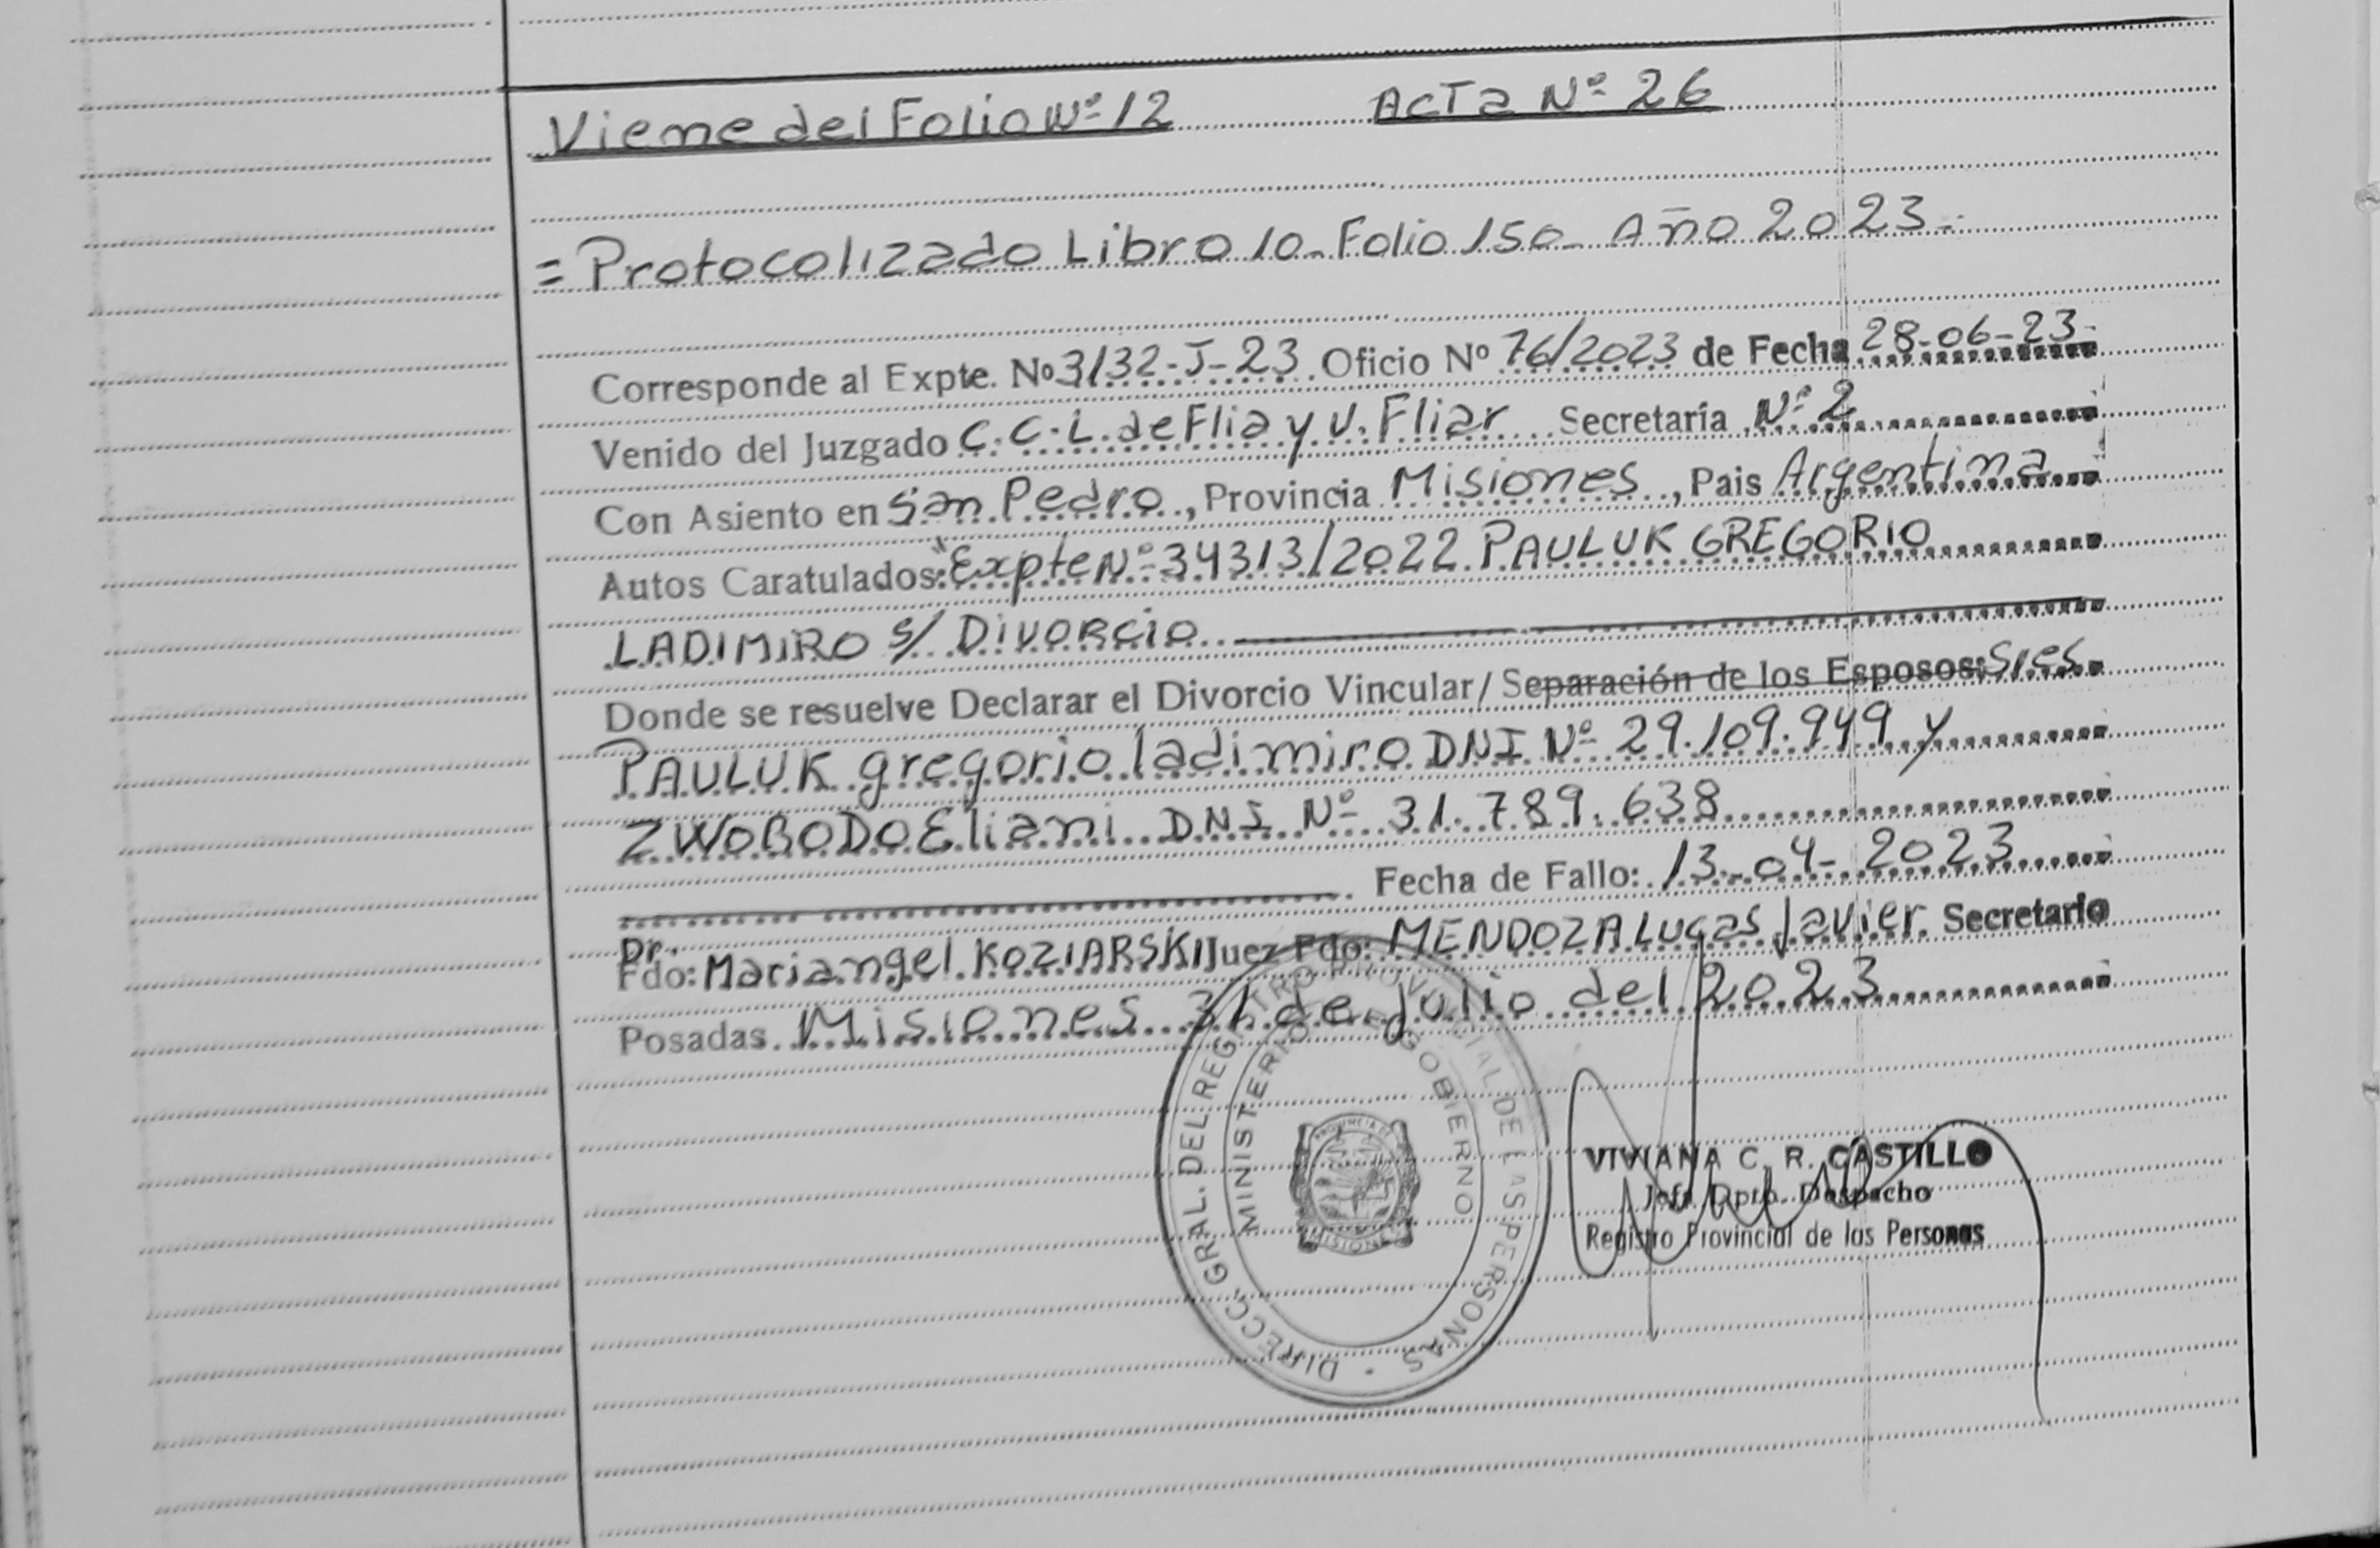 Viene del Folio Nº 12 Acta Nº 26
= Protocolizado Libro 10 - Folio 150 - Año 2023 -
Corresponde al Expte. Nº 3132-J-23 Oficio Nº 76/2023 de Fecha 28-06-23-
Venido del Juzgado C.C.L. de Flia y V. Fliar Secretaría Nº 2
Con Asiento en San Pedro, Provincia Misiones, Pais Argentina
Autos Caratulados: "Expte Nº 34313/2022 PAULUK GREGORIO
LADIMIRO S/ DIVORCIO
Donde se resuelve Declarar el Divorcio Vincular/ Separación de los Esposos: Sres
PAULUK gregorio ladimiro DNI Nº 29.109.949 y
ZWOBODO Eliani DNI Nº 31.789.638
Fecha de Fallo: 13-04-2023
Dr.
Fdo: Mariangel KOZIARSKI Juez Fdo: MENDOZA Lucas Javier Secretario
Posadas Misiones 31 de julio del 2023
DIRECC. GRAL. DEL REGISTRO PROVINCIAL DE LAS PERSONAS
MINISTERIO DE GOBIERNO
PROVINCIA DE
MISIONES
VIVIANA C. R. CASTILLO
Jefe Dpto. Despacho
Registro Provincial de las Personas